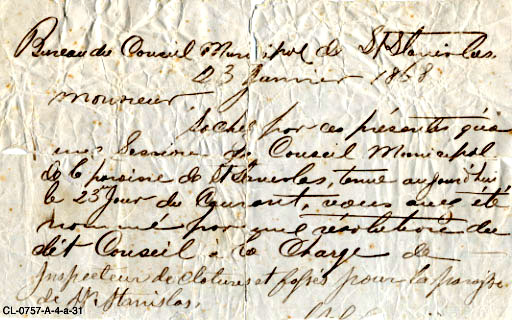 Bureau du Conseil Municipal de St Stanislas.
23 Janvier 1868
Monsieur
Sachez par ces présentes qu'à
une Session du Conseil Municipal
de la paroisse de St Stanislas, tenue aujourd'hui
le 23e Jour du Courant, vous avez été
nommé par une résolution du
dit Conseil à la Charge de
Inspecteur de clotures et fossés pour la paroisse
de St Stanislas.
CL-0757-A-4-a-31